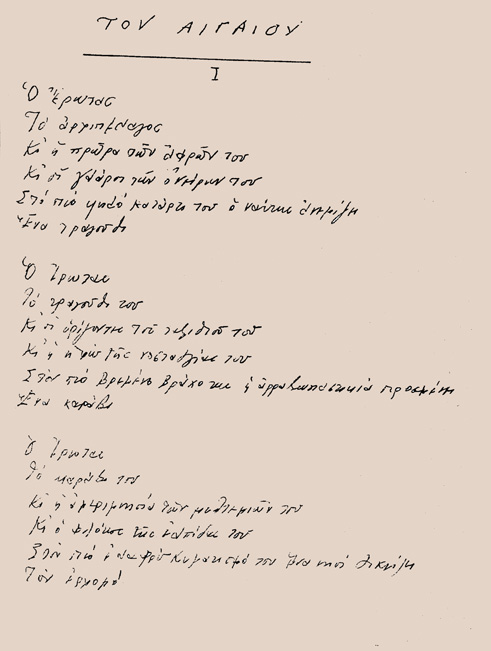 ΤΟΥ ΑΙΓΑΙΟΥ
I
Ὁ Ἔρωτας
Τὸ ἀρχιπέλαγος
Κι ἡ πρῶρα τῶν ἀφρῶν του
Κι οἱ γλάροι τῶν ὀνείρων του
Στὸ πιὸ ψηλὸ κατάρτι του ὁ ναύτης ἀνεμίζει
Ἕνα τραγούδι
Ὁ Ἔρωτας
Τὸ τραγούδι του
Κι οἱ ὁρίζοντες τοῦ ταξιδιοῦ του
Κι ἡ ἠχὼ τῆς νοσταλγίας του
Στὸν πιὸ βρεμένο βράχο της ἡ ἀρραβωνιαστικιὰ προσμένει
Ἕνα καράβι
Ὁ Ἔρωτας
Τὸ καράβι του
Κι ἡ ἀμεριμνησία τῶν μελτεμιῶν του
Κι ὁ φλόκος τῆς ἐλπίδας του
Στὸν πιὸ ἐλαφρὸ κυματισμό του ἕνα νησὶ λικνίζει
Τὸν ἐρχομό